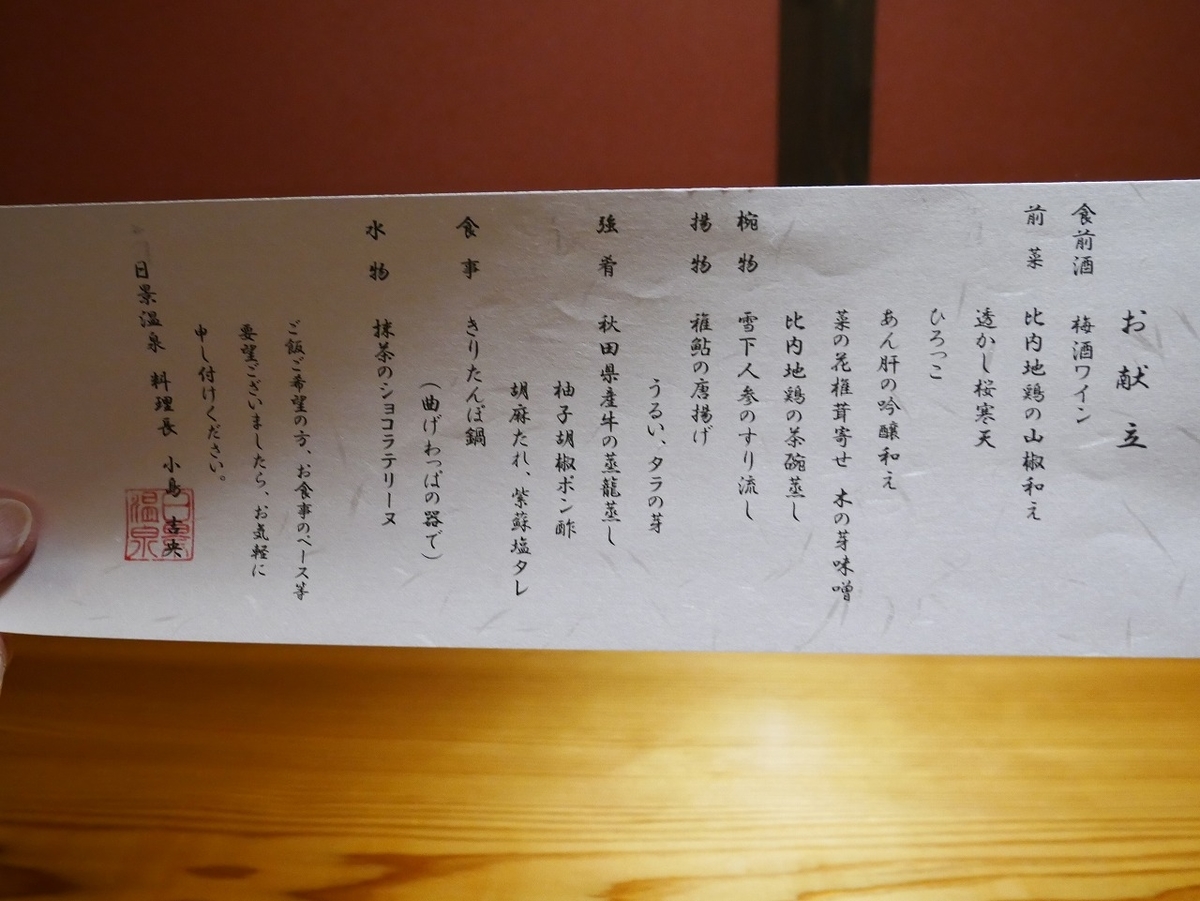 お献立
食前酒　梅酒ワイン
前菜　比内地鶏の山椒和え
透かし桜寒天
ひろっこ
あん肝の吟醸和え
菜の花椎茸寄せ　木の芽味噌
比内地鶏の茶碗蒸し
椀物　雪下人参のすり流し
揚物　稚鮎の唐揚げ
うるい、タラの芽
強肴　秋田県産牛の蒸籠蒸し
柚子胡椒ポン酢
胡麻たれ、紫蘇塩タレ
食事　きりたんぽ鍋
（曲げわっぱの器で）
水物　抹茶のショコラテリーヌ
ご飯ご希望の方、お食事のペース等
要望ございましたら、お気軽に
申し付けください。
日景温泉　料理長　小鳥　吉央
日景温泉